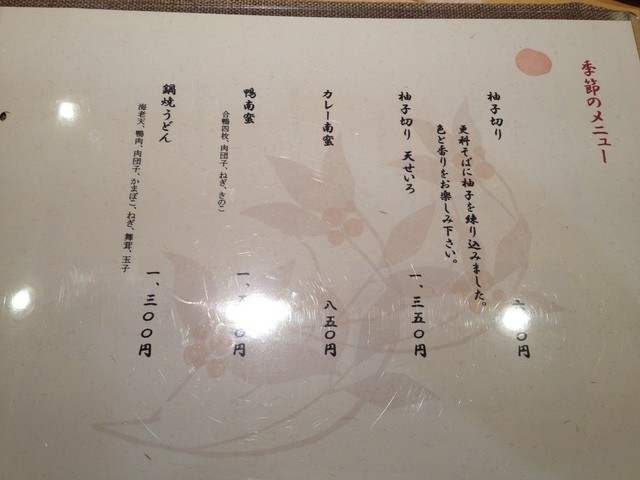 季節のメニュー
柚子切り
更科そばに柚子を練り込みました。
色と香りをお楽しみ下さい。
円
柚子切り 天せいろ 一、三五〇円
カレー南蛮 八五〇円
鴨南蛮
合鴨四枚、肉団子、ねぎ、きのこ
円
鍋焼うどん
海老天、鴨肉、肉団子、かまぼこ、ねぎ、舞茸、玉子
一、三〇〇円